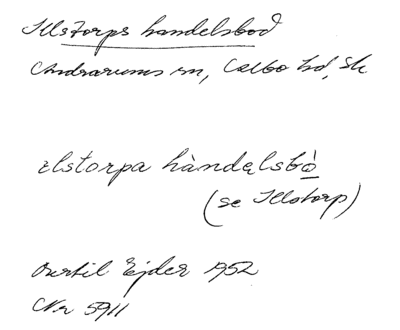 Illstorps handelsbod
Andrarums sn, Albo hd, Sk
ęlstorpa hàndęlsbò
(se Illstorp)
Bertil Ejder 1952
Nr 5911